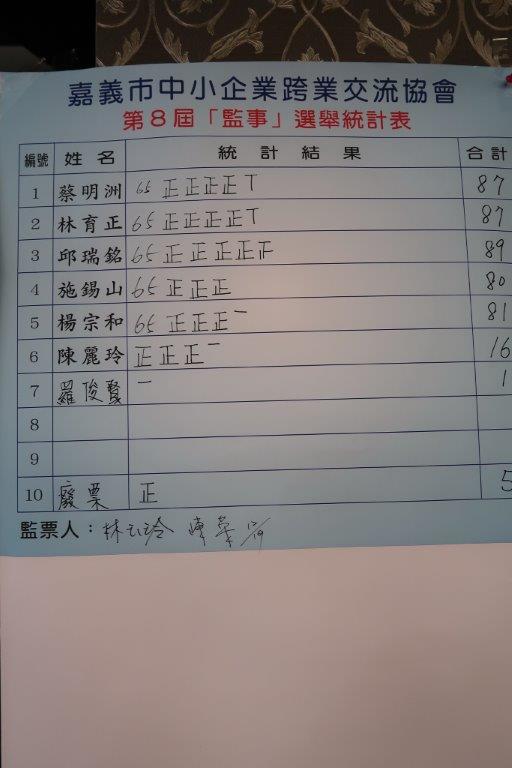 嘉義市中小企業跨業交流協會
第8屆「監事」選舉統計表
編號 姓名 統計結果 合計
1 蔡明洲 65 正正正正T 87
2 林育正 65 正正正正T 87
3 邱瑞銘 65 正正正正正 89
4 施錫山 65 正正正 80
5 楊宗和 65 正正正一 81
6 陳麗玲 正正正一 16
7 羅俊賢 一 1
8
9
10 廢票 正 5
監票人：林玲